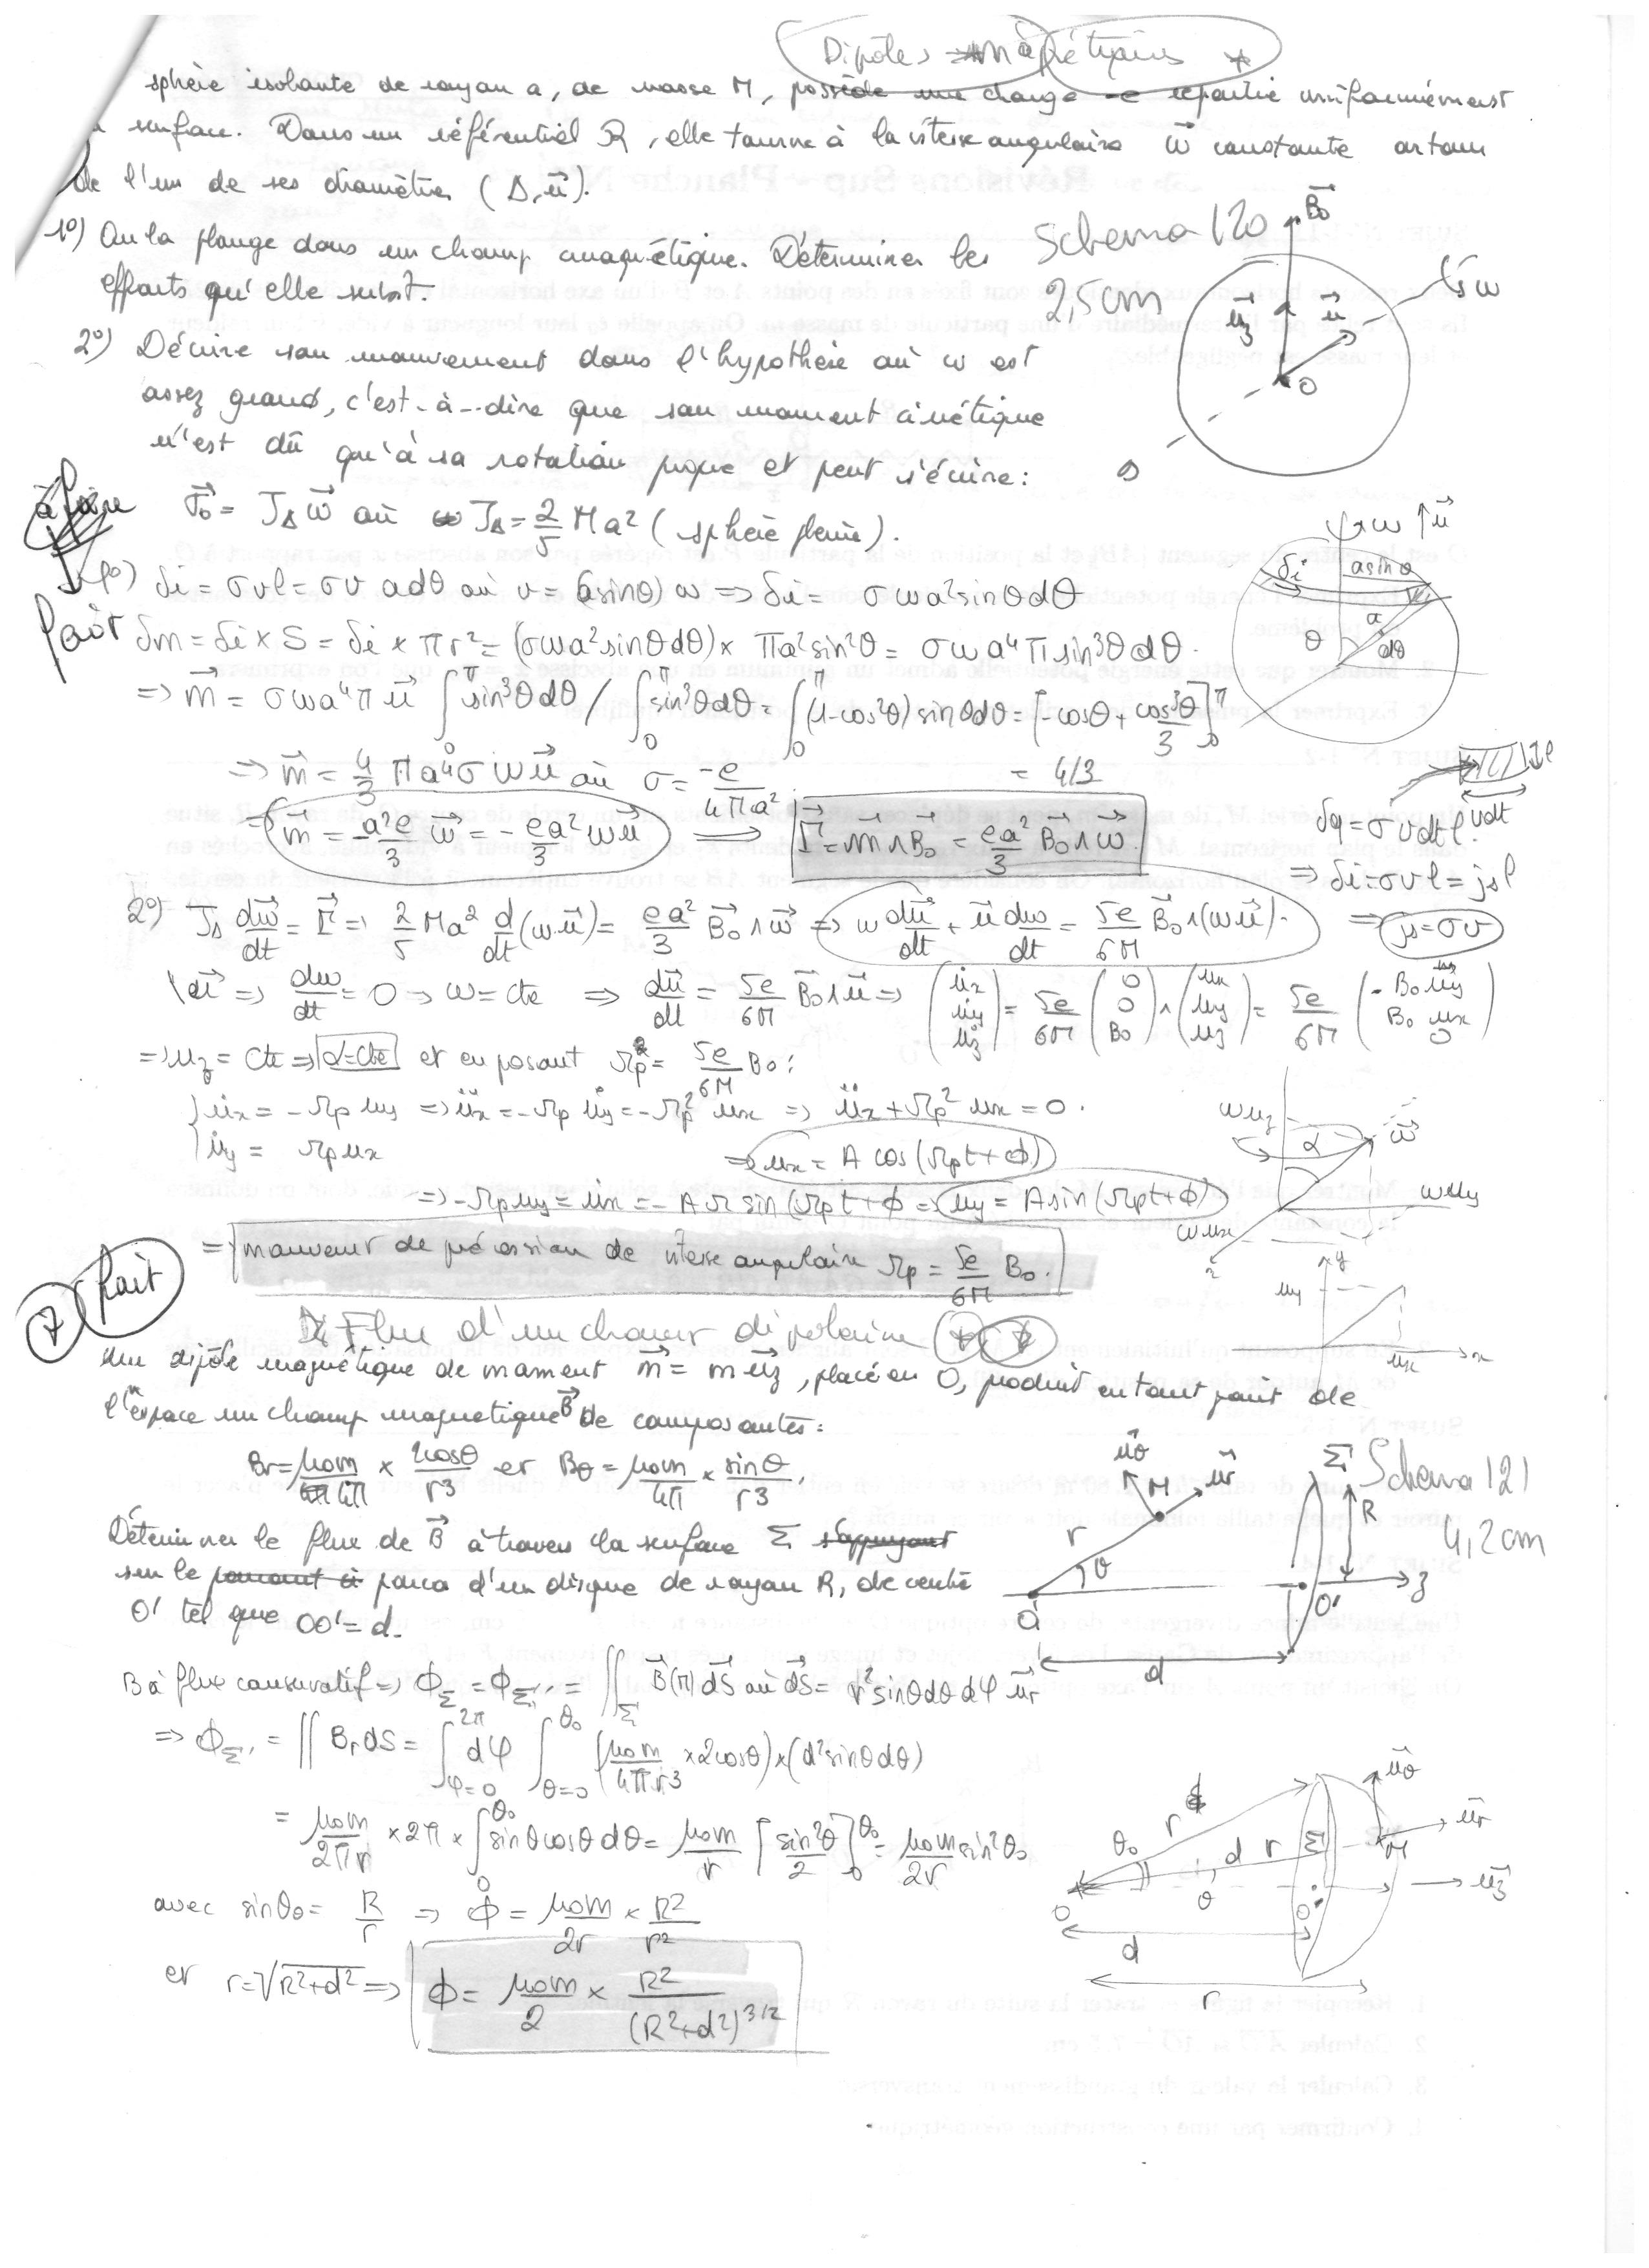 Dipôles magnétiques *
sphère isolante de rayon a, de masse M, possède une charge -e répartie uniformément
surface. Dans un référentiel R, elle tourne à la vitesse angulaire ω⃗ constante autour
de l'un de ses diamètres (Δ, u⃗).
1°) On la plonge dans un champ magnétique. Déterminer les
efforts qu'elle subit.
Schema 120
2,5cm
B⃗₀
u⃗z
u⃗
ω
O
Δ
2°) Décrire son mouvement dans l'hypothèse où ω est
assez grand, c'est-à-dire que son moment cinétique
n'est dû qu'à sa rotation propre et peut s'écrire :
à faire
σ⃗₀ = J_Δ ω⃗ où J_Δ = 2/5 Ma² (sphère pleine).
1°) δi = σvl = σv adθ où v = (a sinθ) ω => δi = σωa² sinθdθ
fait
δm = δi × S = δi × πr² = (σωa² sinθdθ) × πa² sin²θ = σωa⁴π sin³θdθ.
=> m⃗ = σωa⁴π u⃗ ∫₀^π sin³θdθ / ∫₀^π sin³θdθ = ∫₀^π (1-cos²θ) sinθdθ = [-cosθ + cos³θ/3]₀^π
=> m⃗ = 4/3 πa⁴σωu⃗ où σ = -e/4πa² = 4/3
=> m⃗ = -a²e/3 ω⃗ = -ea²/3 ωu⃗ => Γ⃗ = m⃗ ∧ B⃗₀ = ea²/3 B⃗₀ ∧ ω⃗.
ω ↑u⃗
δi
a sinθ
a
θ
dθ
vdt
δq = σvdt l
=> δi = σvl = js l
=> js = σv
2°) J_Δ dω⃗/dt = Γ⃗ => 2/5 Ma² d/dt (ωu⃗) = ea²/3 B⃗₀ ∧ ω⃗ => ω du⃗/dt + u⃗ dω/dt = 5e/6M B⃗₀ ∧ (ωu⃗).
=> dω/dt = 0 → ω = cte => du⃗/dt = 5e/6M B⃗₀ ∧ u⃗ => (u̇x u̇y u̇z) = 5e/6M (0 0 B₀) ∧ (ux uy uz) = 5e/6M (-B₀uy B₀ux 0)
=> uz = Cte => α = cte et en posant Ωp = 5e/6M B₀ :
{ u̇x = -Ωp uy => üx = -Ωp u̇y = -Ωp² ux => üx + Ωp² ux = 0.
{ u̇y = Ωp ux => ux = A cos(Ωpt + ϕ)
=> -Ωp uy = u̇x = -AΩ sin(Ωpt + ϕ => uy = A sin(Ωpt + ϕ)
=> mouvement de précession de vitesse angulaire Ωp = 5e/6M B₀.
ωuz
α
ω⃗
ωuy
ωux
x
y
uy
ux
x
7
fait
Flux d'un champ dipolaire
Un dipôle magnétique de moment m⃗ = m u⃗z, placé en O, produit en tout point de
l'espace un champ magnétique B⃗ de composantes :
Br = μ₀m/4π × 2cosθ/r³ et Bθ = μ₀m/4π × sinθ/r³.
Déterminer le flux de B⃗ à travers la surface Σ s'appuyant
sur le parcours d'un disque de rayon R, de centre
O' tel que OO' = d.
Schema 121
4,2cm
u⃗θ
M
u⃗r
r
θ
O
Σ
R
O'
z
d
B à flux conservatif => Φ_Σ = Φ_Σ' = ∬_Σ' B⃗(M) dS⃗ où dS⃗ = r² sinθdθdφ u⃗r
=> Φ_Σ' = ∬ Br dS = ∫_{φ=0}^{2π} dφ ∫_{θ=0}^{θ₀} (μ₀m/4πr³ × 2cosθ) × (d² sinθdθ)
= μ₀m/2πr × 2π × ∫₀^θ₀ sinθcosθdθ = μ₀m/r [sin²θ/2]₀^θ₀ = μ₀m/2r sin²θ₀
avec sinθ₀ = R/r => Φ = μ₀m/2r × R²/r²
et r = √(R²+d²) => Φ = μ₀m/2 × R²/(R²+d²)^3/2
u⃗θ
r
θ₀
d
r
Σ
M
u⃗r
u⃗z
O
θ
O'
d
r